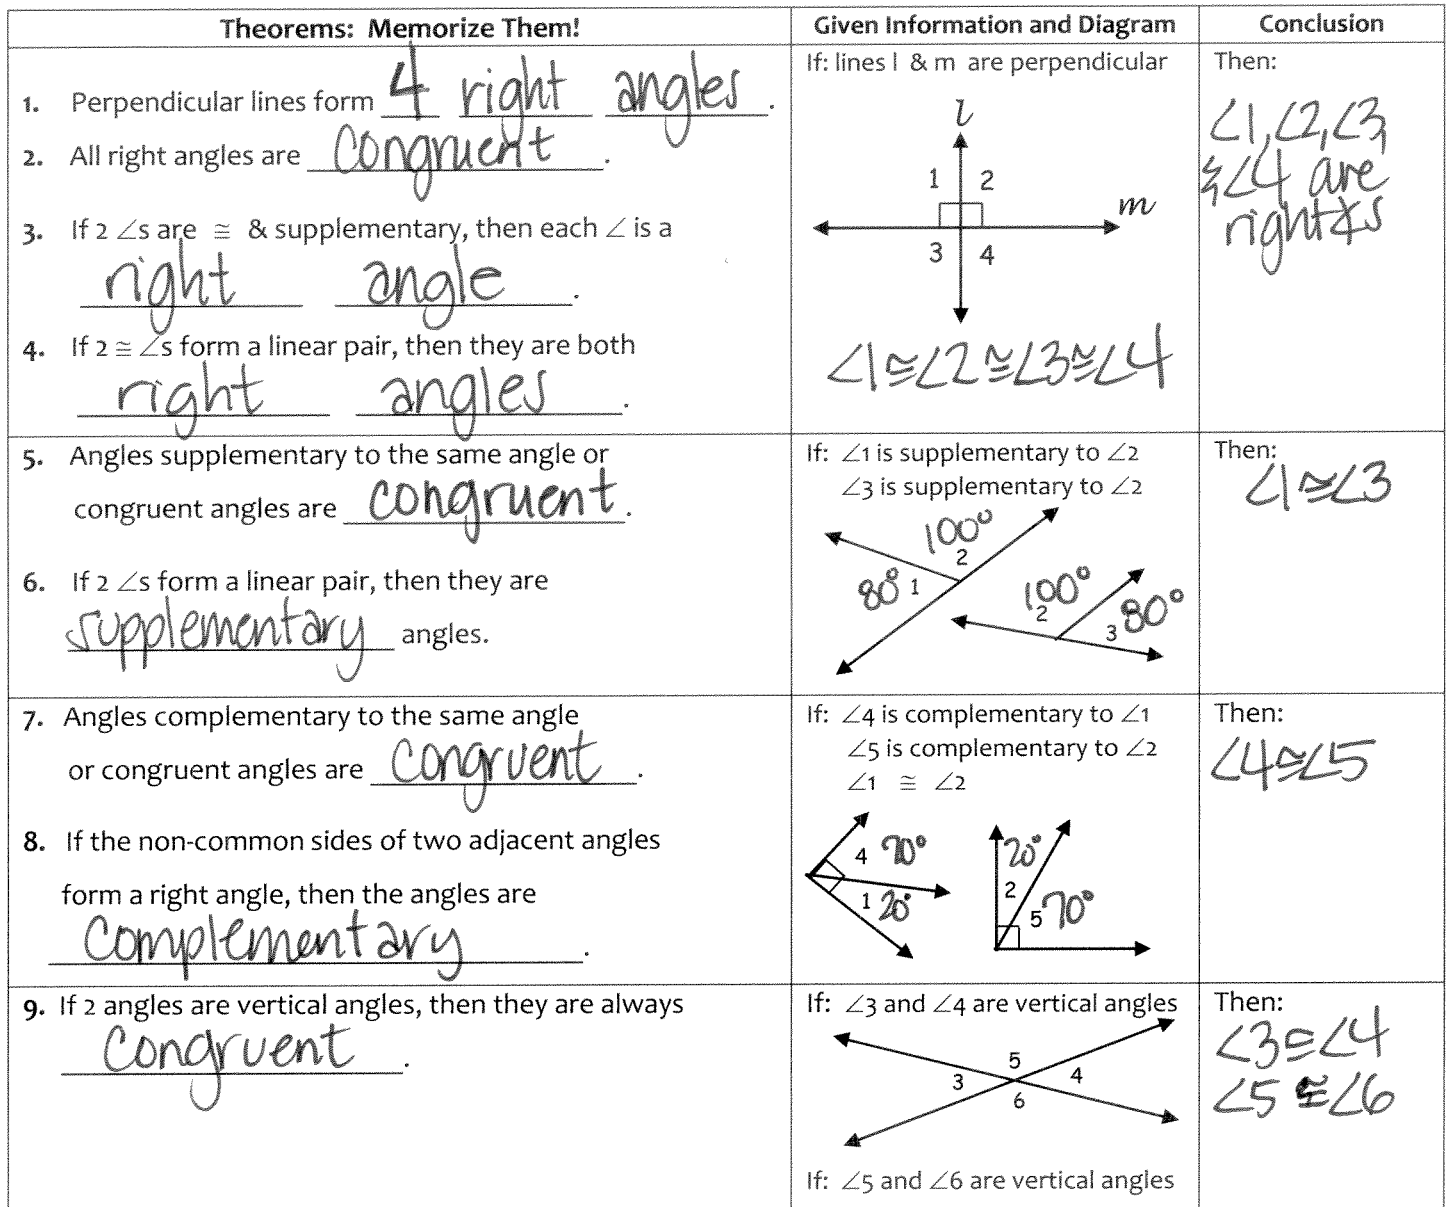 Theorems: Memorize Them!
Given Information and Diagram
Conclusion
1. Perpendicular lines form 4 right angles.
2. All right angles are congruent.
3. If 2 ∠s are ≅ & supplementary, then each ∠ is a
right angle.
4. If 2 ≅ ∠s form a linear pair, then they are both
right angles.
If: lines l & m are perpendicular
l
1 2
m
3 4
∠1≅∠2≅∠3≅∠4
Then:
∠1,∠2,∠3,
&∠4 are
right∡s
5. Angles supplementary to the same angle or
congruent angles are congruent.
6. If 2 ∠s form a linear pair, then they are
supplementary angles.
If: ∠1 is supplementary to ∠2
∠3 is supplementary to ∠2
100°
2
80° 1
100°
2
3 80°
Then:
∠1≅∠3
7. Angles complementary to the same angle
or congruent angles are congruent.
8. If the non-common sides of two adjacent angles
form a right angle, then the angles are
complementary.
If: ∠4 is complementary to ∠1
∠5 is complementary to ∠2
∠1 ≅ ∠2
4 70°
1 20°
20°
2
5 70°
Then:
∠4≅∠5
9. If 2 angles are vertical angles, then they are always
congruent.
If: ∠3 and ∠4 are vertical angles
5
3 4
6
If: ∠5 and ∠6 are vertical angles
Then:
∠3≅∠4
∠5≅∠6